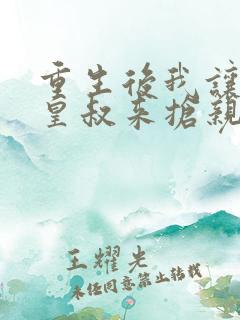 重生後我讓
皇叔來搶親
王耀光
未經同意禁止轉載